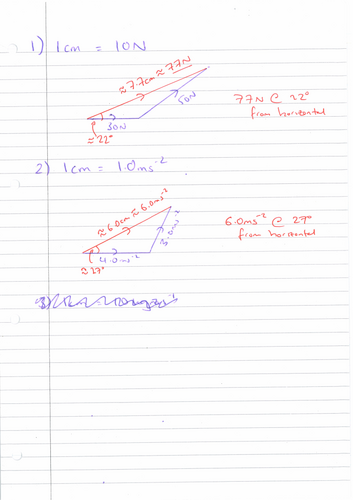 1) 1cm = 10N
≈ 7.7cm ≈ 77N
50N
30N
≈ 22°
77N @ 22°
from horizontal
2) 1cm = 1.0ms⁻²
≈ 6.0cm ≈ 6.0ms⁻²
3.0ms⁻²
4.0ms⁻²
≈ 27°
6.0ms⁻² @ 27°
from horizontal
3)